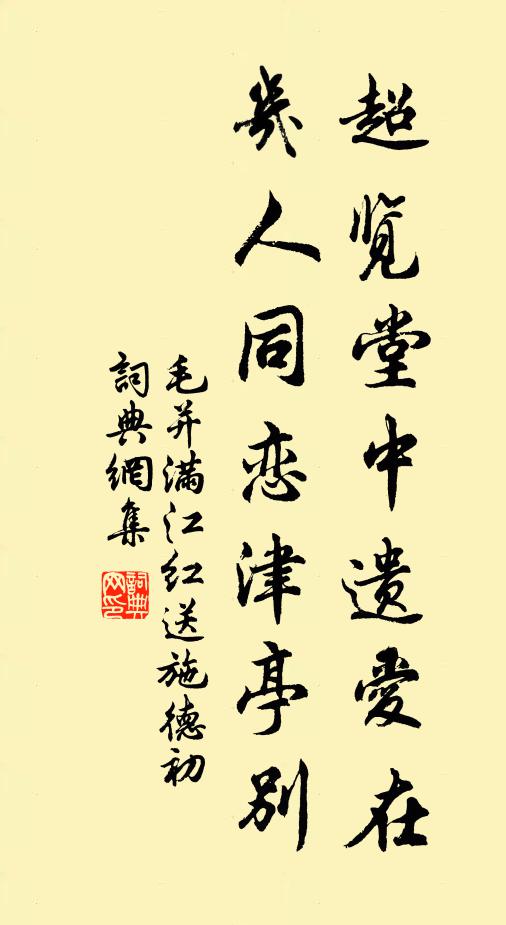 超览堂中遗爱在
幾人同恋津亭别
毛并满江红送施德初
詞典網集
詞典网印